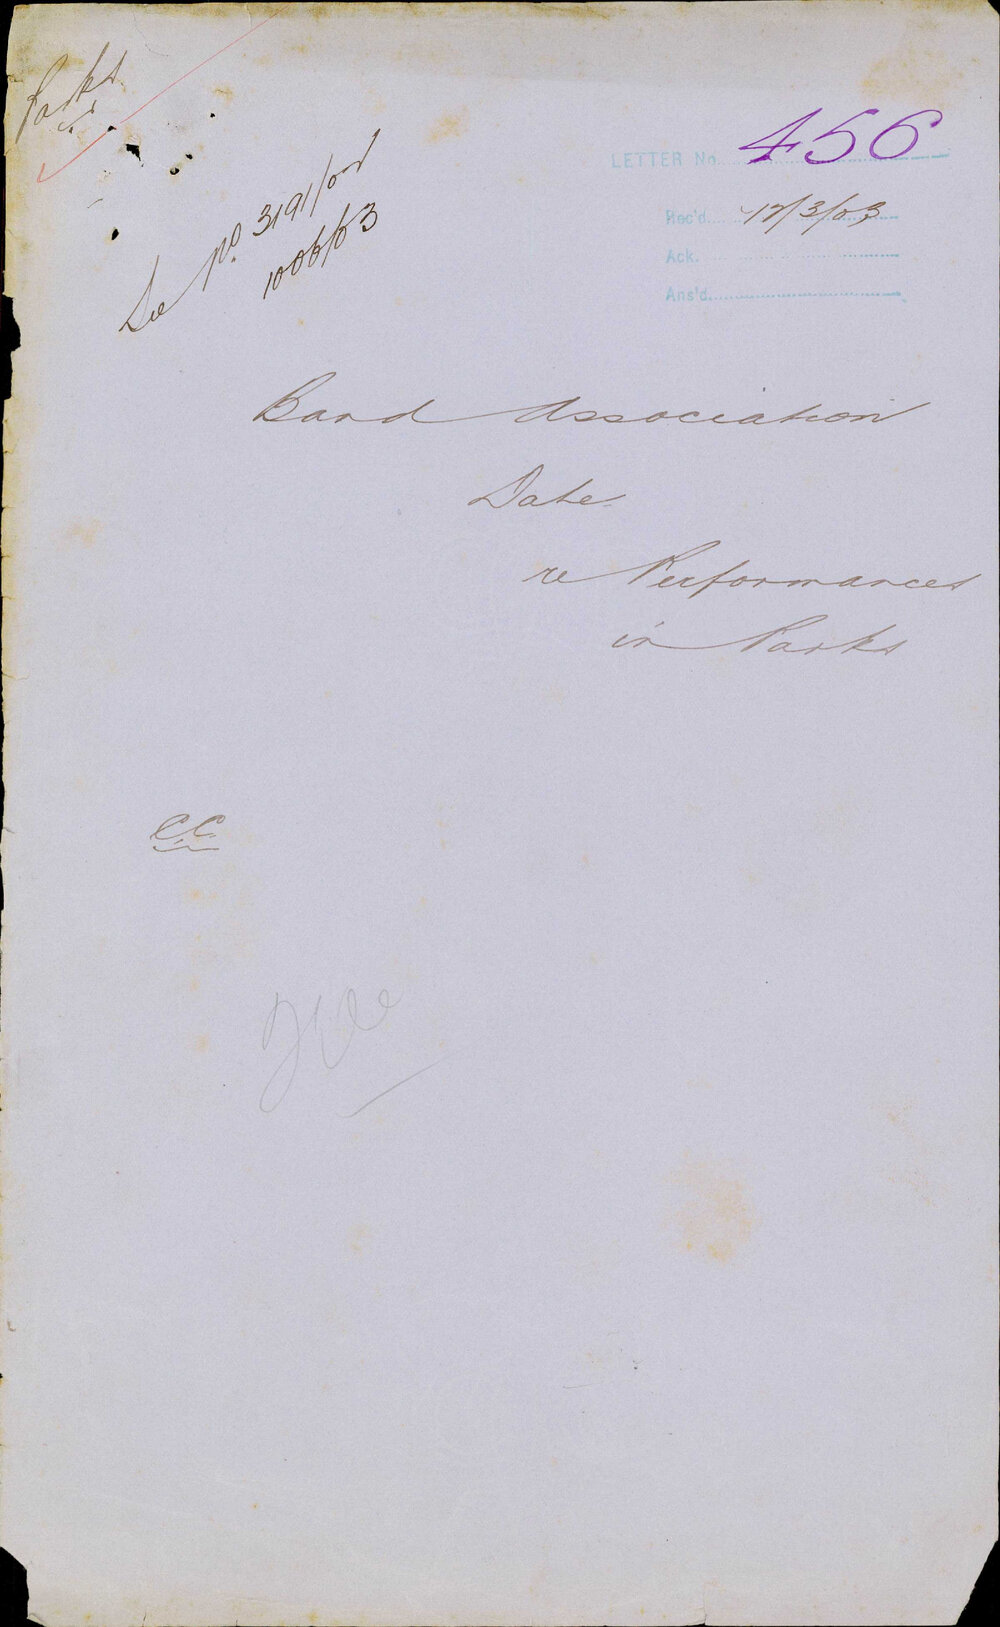 Parks
LETTER No. 456
Rec'd. 12/3/03
Ack.
Ans'd.
See No. 3191/02
1006/03
Band Association
Date
re Performances
in Parks
C.C.
File